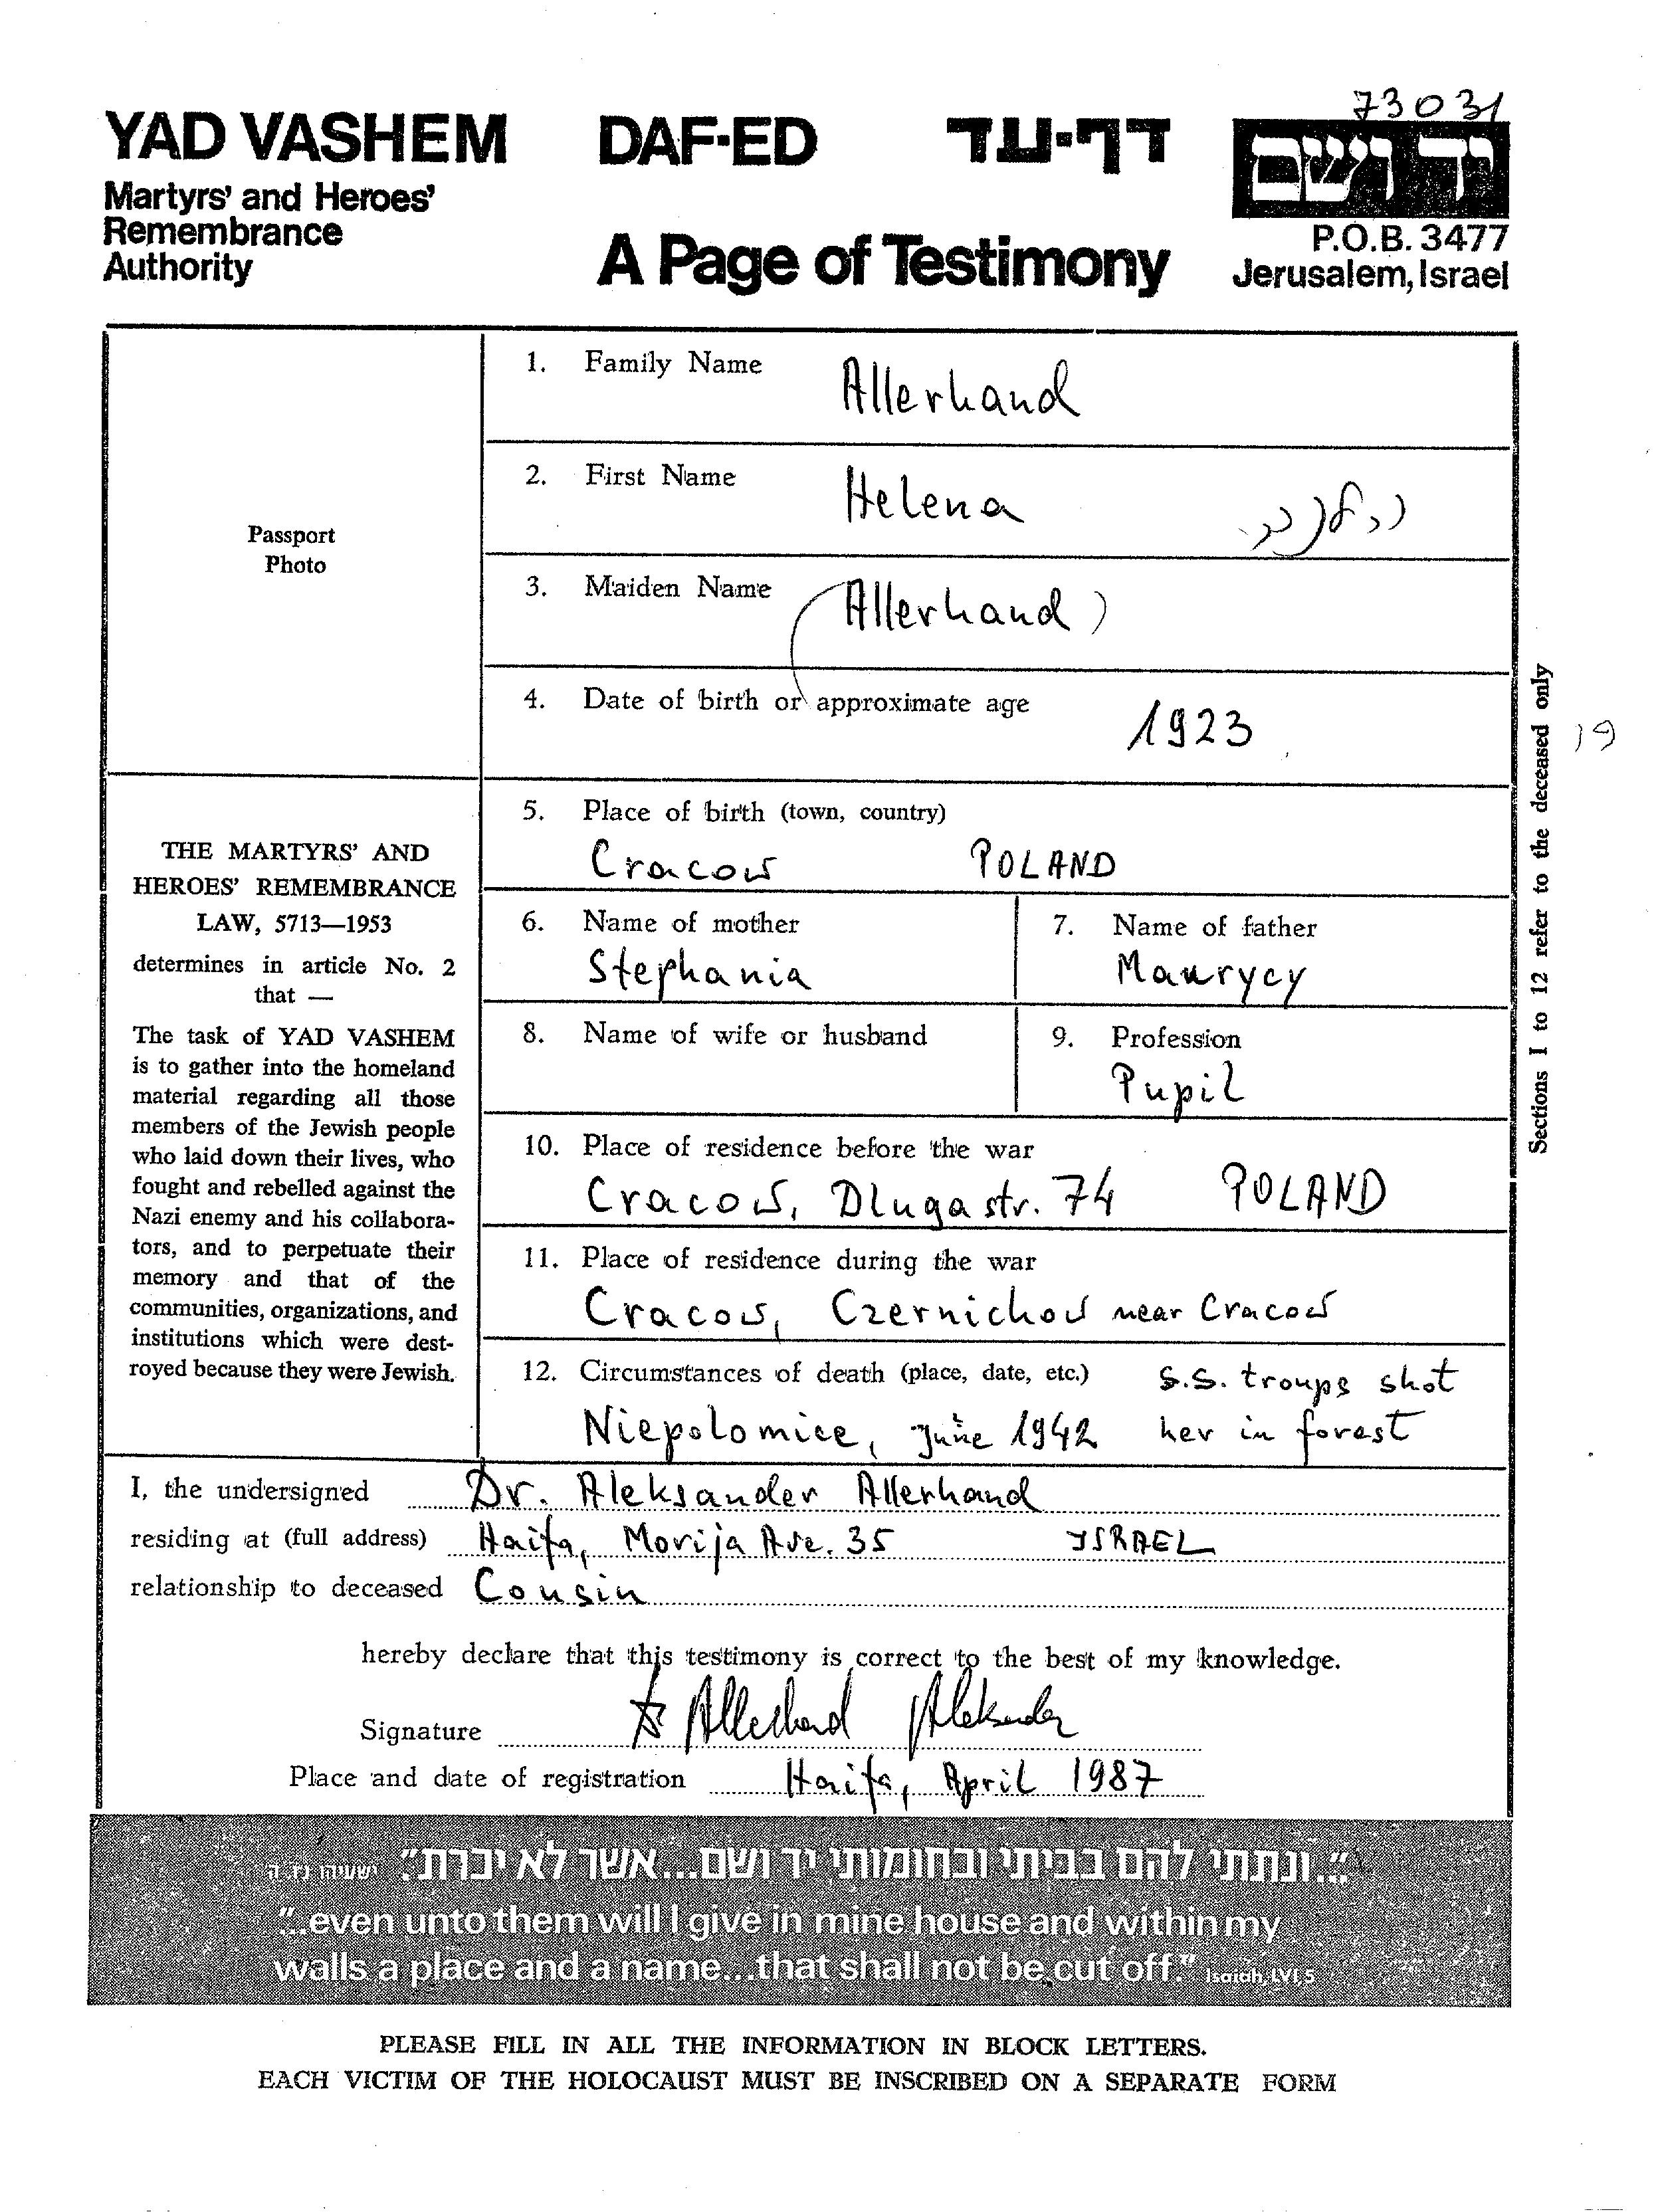 73031
YAD VASHEM DAF-ED דף-עד ידושם
Martyrs' and Heroes'
Remembrance
Authority
A Page of Testimony
P.O.B. 3477
Jerusalem, Israel
Passport
Photo
1. Family Name Allerhand
2. First Name Helena
3. Maiden Name (Allerhand)
4. Date of birth or approximate age 1923
19
5. Place of birth (town, country)
Cracow POLAND
6. Name of mother 7. Name of father
Stephania Maurycy
8. Name of wife or husband 9. Profession
Pupil
10. Place of residence before the war
Cracow, Dluga str. 74 POLAND
11. Place of residence during the war
Cracow, Czernichow near Cracow
12. Circumstances of death (place, date, etc.) S.S. troups shot
Niepolomice, June 1942 her in forest
Sections 1 to 12 refer to the deceased only
THE MARTYRS' AND
HEROES' REMEMBRANCE
LAW, 5713—1953
determines in article No. 2
that —
The task of YAD VASHEM
is to gather into the homeland
material regarding all those
members of the Jewish people
who laid down their lives, who
fought and rebelled against the
Nazi enemy and his collabora-
tors, and to perpetuate their
memory and that of the
communities, organizations, and
institutions which were dest-
royed because they were Jewish.
I, the undersigned Dr. Aleksander Allerhand
residing at (full address) Haifa, Morija Ave. 35 ISRAEL
relationship to deceased Cousin
hereby declare that this testimony is correct to the best of my knowledge.
Signature Allerhand Aleksander
Place and date of registration Haifa, April 1987
"...ונתתי להם בביתי ובחומותי יד ושם...אשר לא יכרת." ישעיהו נו, ה
"...even unto them will I give in mine house and within my
walls a place and a name...that shall not be cut off." Isaiah, LVI, 5
PLEASE FILL IN ALL THE INFORMATION IN BLOCK LETTERS.
EACH VICTIM OF THE HOLOCAUST MUST BE INSCRIBED ON A SEPARATE FORM